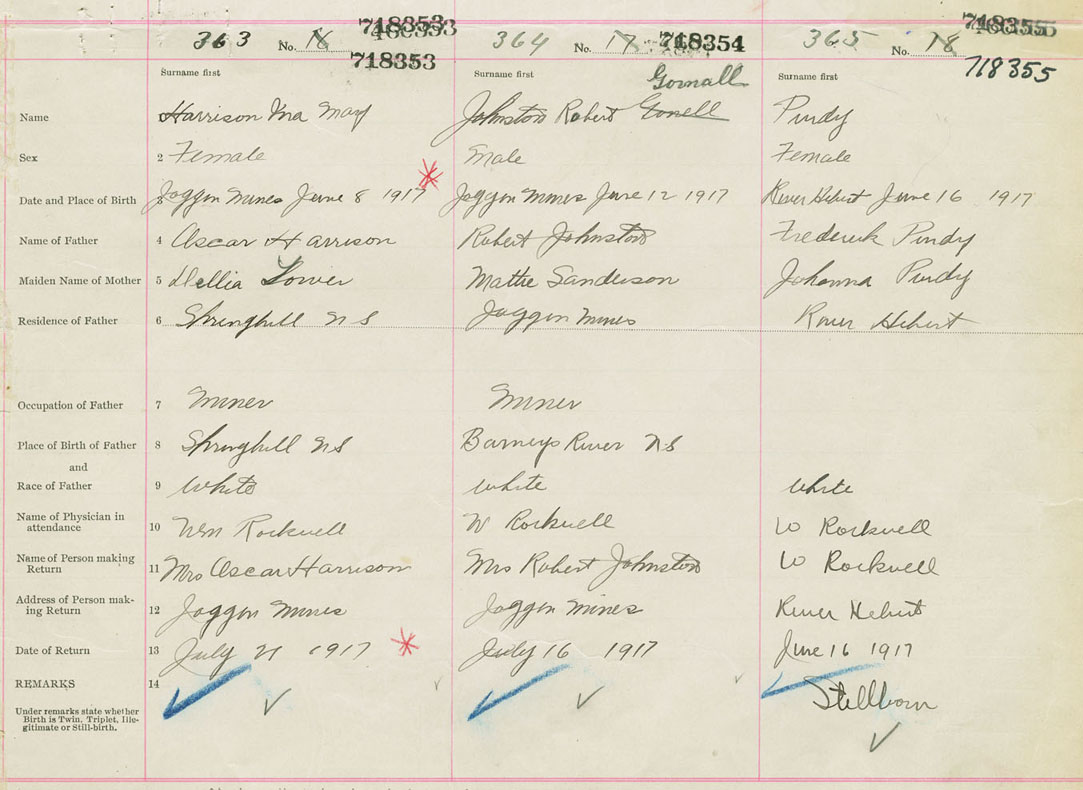 363 No. 16 718353 364 No. 17 718354 365 No. 18
718353 718355
Surname first Surname first Gornall Surname first
Name 1 Harrison Ina May Johnston Robert Gonell Purdy
Sex 2 Female Male Female
Date and Place of Birth 3 Joggin Mines June 8 1917 Joggin Mines June 12 1917 River Hebert June 16 1917
Name of Father 4 Oscar Harrison Robert Johnston Frederick Purdy
Maiden Name of Mother 5 Dellia Mattie Sanderson Johanna Purdy
Residence of Father 6 Springhill NS Joggin Mines River Hebert
Occupation of Father 7 Miner Miner
Place of Birth of Father 8 Springhill NS Barneys River NS
and
Race of Father 9 White White White
Name of Physician in
attendance 10 Wm Rockwell W Rockwell W Rockwell
Name of Person making
Return 11 Mrs Oscar Harrison Mrs Robert Johnston W Rockwell
Address of Person mak-
ing Return 12 Joggin Mines Joggin Mines River Hebert
Date of Return 13 July 21 1917 July 16 1917 June 16 1917
REMARKS 14 Stillborn
Under remarks state whether
Birth is Twin, Triplet, Ille-
gitimate or Still-birth.